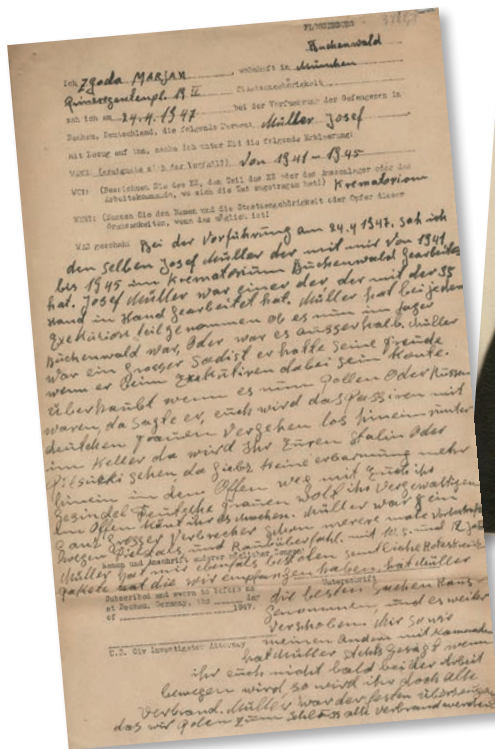 FLOSSENBURG
Buchenwald
Ich Zgoda MARJAN, wohnhaft in München
Prinzregentenpl. 19 II Staatsangehörigkeit
sah ich am 24.4.1947 bei der Vorfuehrung der Gefangenen in
Dachau, Deutschland, die folgende Person: Müller Josef
mit Bezug auf ihn, mache ich unter Eid die folgende Erklaerung:
WANN: (ereignete sich der Vorfall?) Von 1941 – 1945
WO: (Bezeichnen Sie das KZ, den Teil des KZ oder des Aussenlager oder des
Arbeitskommando, wo sich die Tat zugetragen hat!) Krematorium
WEM: (Nennen Sie den Namen und die Staatsangehörigkeit oder Opfer dieser
Grausamkeiten, wenn das möglich ist!
WAS geschah: Bei der Vorführung am 24.4 1947. sah ich
den selben Josef Müller der mit mir von 1941
bis 1945 im Krematorium Buchenwald gearbeitet
hat. Josef Müller war einer der, der mit der SS
Hand in Hand gearbeitet hat. Müller hat bei jeder
Exekution teilgenommen ob es nun im Lager
Buchenwald war, oder war es ausserhalb. Müller
war ein grosser Sadist er hatte seine Freude
wenn er beim Exekutiren dabei sein konte.
überhaubt wenn es nun Pollen oder Russen
waren, da sagte er, euch wird das Passiren mit
deutchen Frauen vergehen los hinein unter
im Keller da wird Ihr Euren Stalin oder
Pilsutzki sehen da giebz keine erbarmung mehr
hinein in dem Offen weg mit Euch ihr
Gesindel Deutsche Frauen wolt ihr Vergewaltigen
im Offen könt ihr es machen. Müller war ein
ganz Grosser Verbrecher schon merere male
wegen Diebstals und Raubüberfahl. mit 10 J. und 12 Jahr
Namen und Anschrift anderer möglicher Zeugen:
Müller hat mir ebenfals bestolen semtliche
Pakete hat die wir empfangen haben hat Müller
Unterschrift
Subscribed and sworn to before me die besten Sachen Raus
at Dachau, Germany, this ____ day genommen, und es weiter
of ____ 1947. verschoben. Mir sowie
meinen andern mit Kameraden
U.S. Civ Investigator Attorney hat Müller stehts gesagt wenn
ihr euch nicht bald bei der Arbeit
bewegen wird so wird ihr doch alle
verbrand. Müller war der festen überzeugung
das wir Polen zum Schluss alle verbrand werden